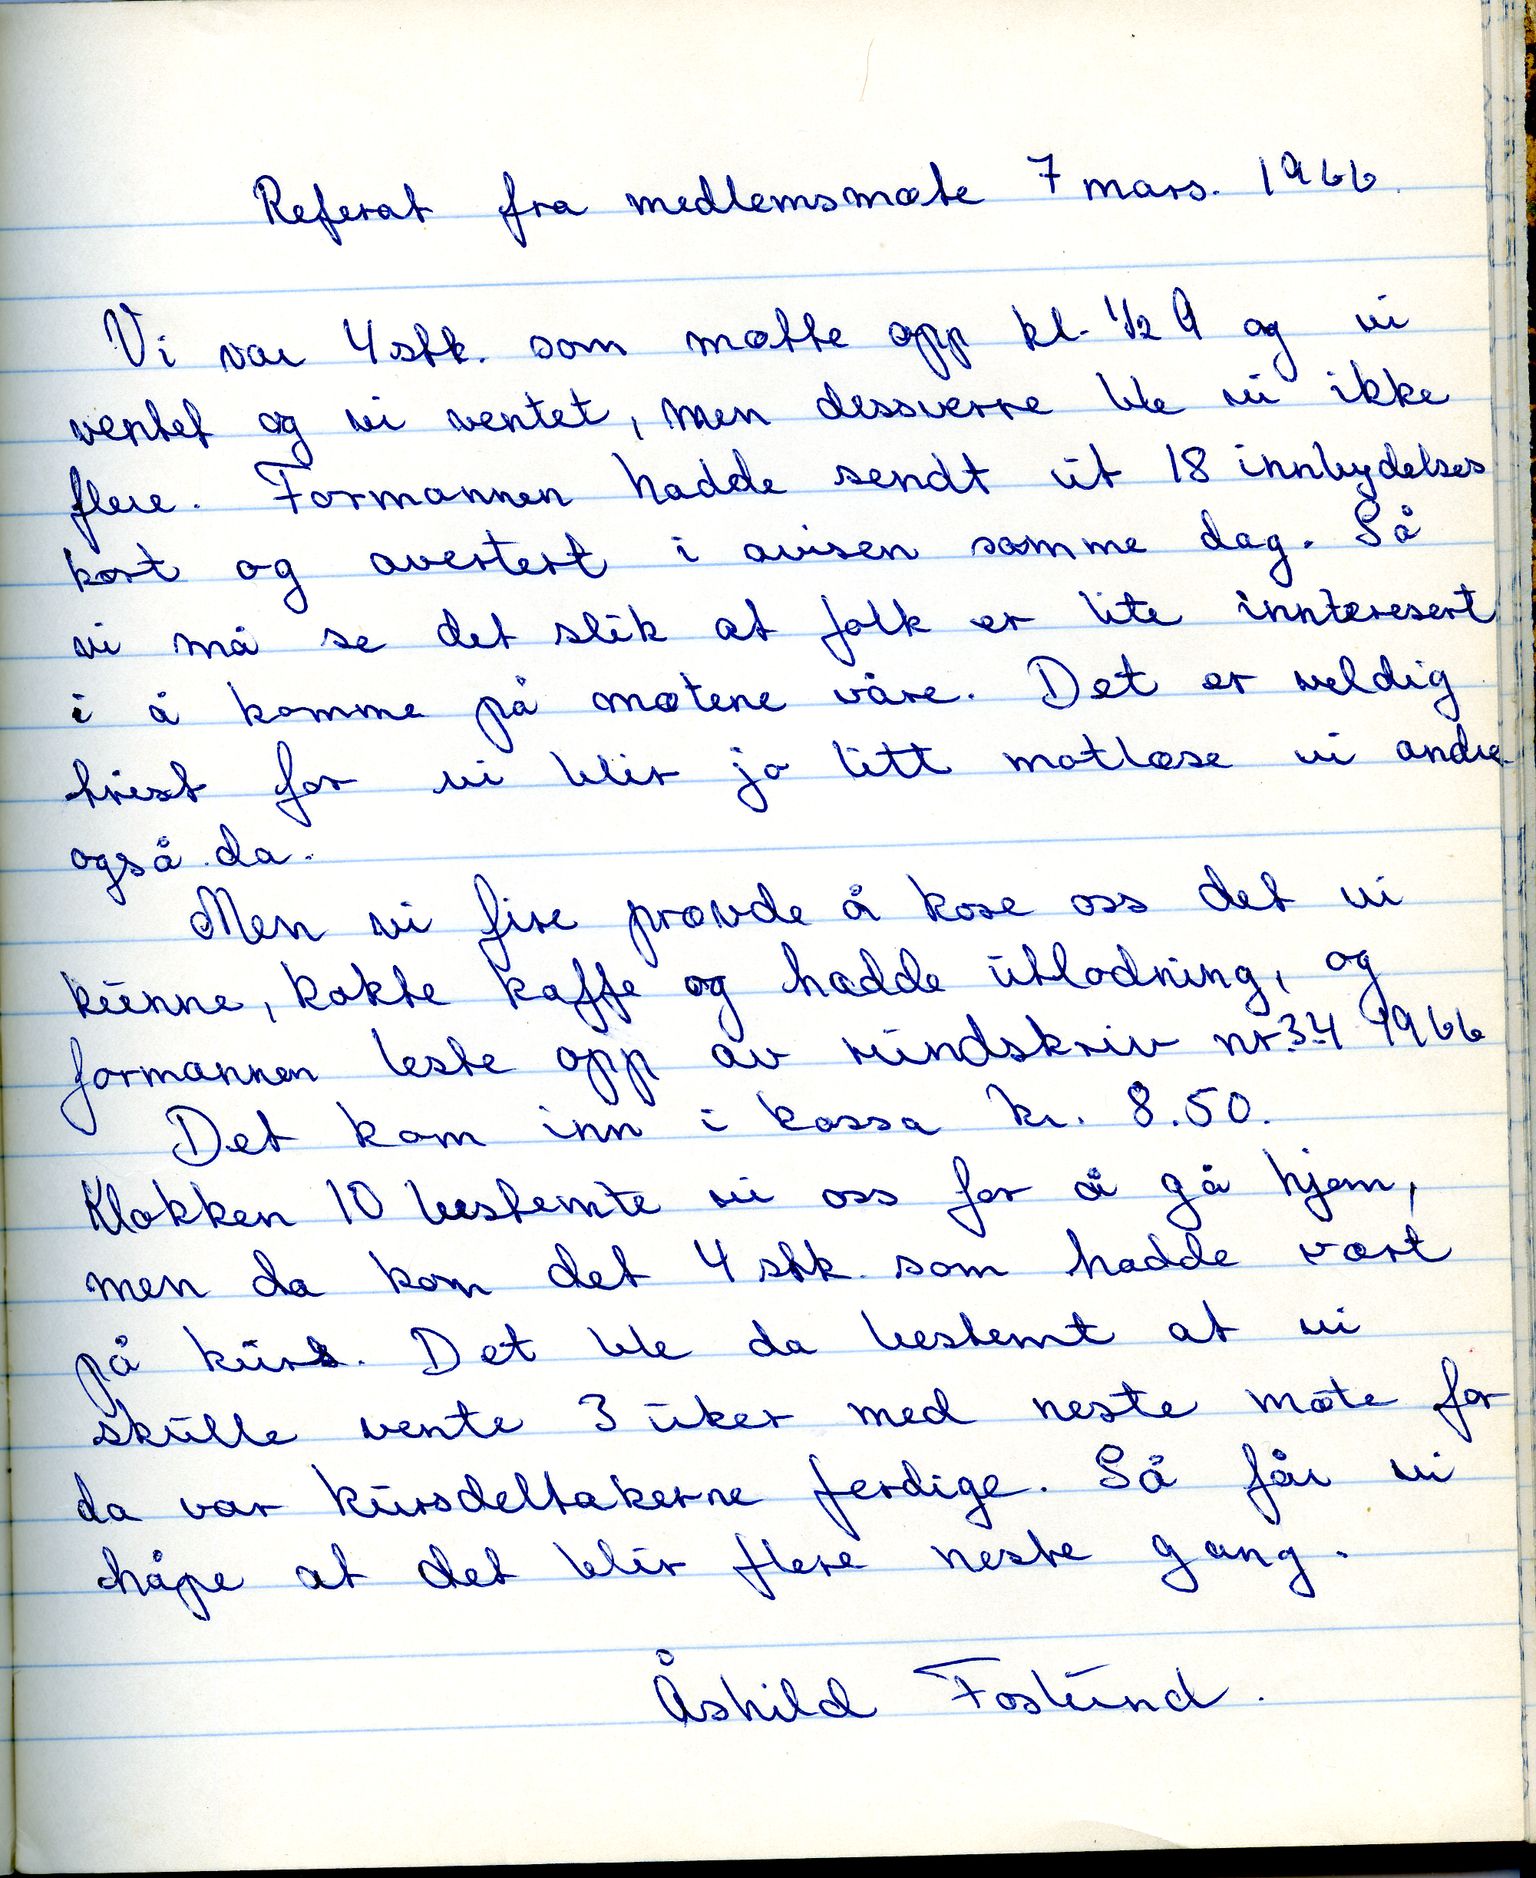 Referat fra medlemsmøte 7 mars. 1966.
Vi var 4 stk. som møtte opp kl. 1/2 9 og vi
ventet og vi ventet, men dessverre ble vi ikke
flere. Formannen hadde sendt ut 18 innbydelses
kort og avertert i avisen samme dag. Så
vi må se det slik at folk er lite innteresert
i å komme på møtene våre. Det er veldig
trist for vi blir jo litt motløse vi andre
også da.
Men vi fire prøvde å kose oss det vi
kunne, kokte kaffe og hadde utlodning, og
formannen leste opp av rundskriv nr. 34 1966
Det kom inn i kassa kr. 8.50.
Klokken 10 bestemte vi oss for å gå hjem,
men da kom det 4 stk. som hadde vært
på kurs. Det ble da bestemt at vi
skulle vente 3 uker med neste møte for
da var kursdeltakerne ferdige. Så får vi
håpe at det blir flere neste gang.
Åshild Foslund.